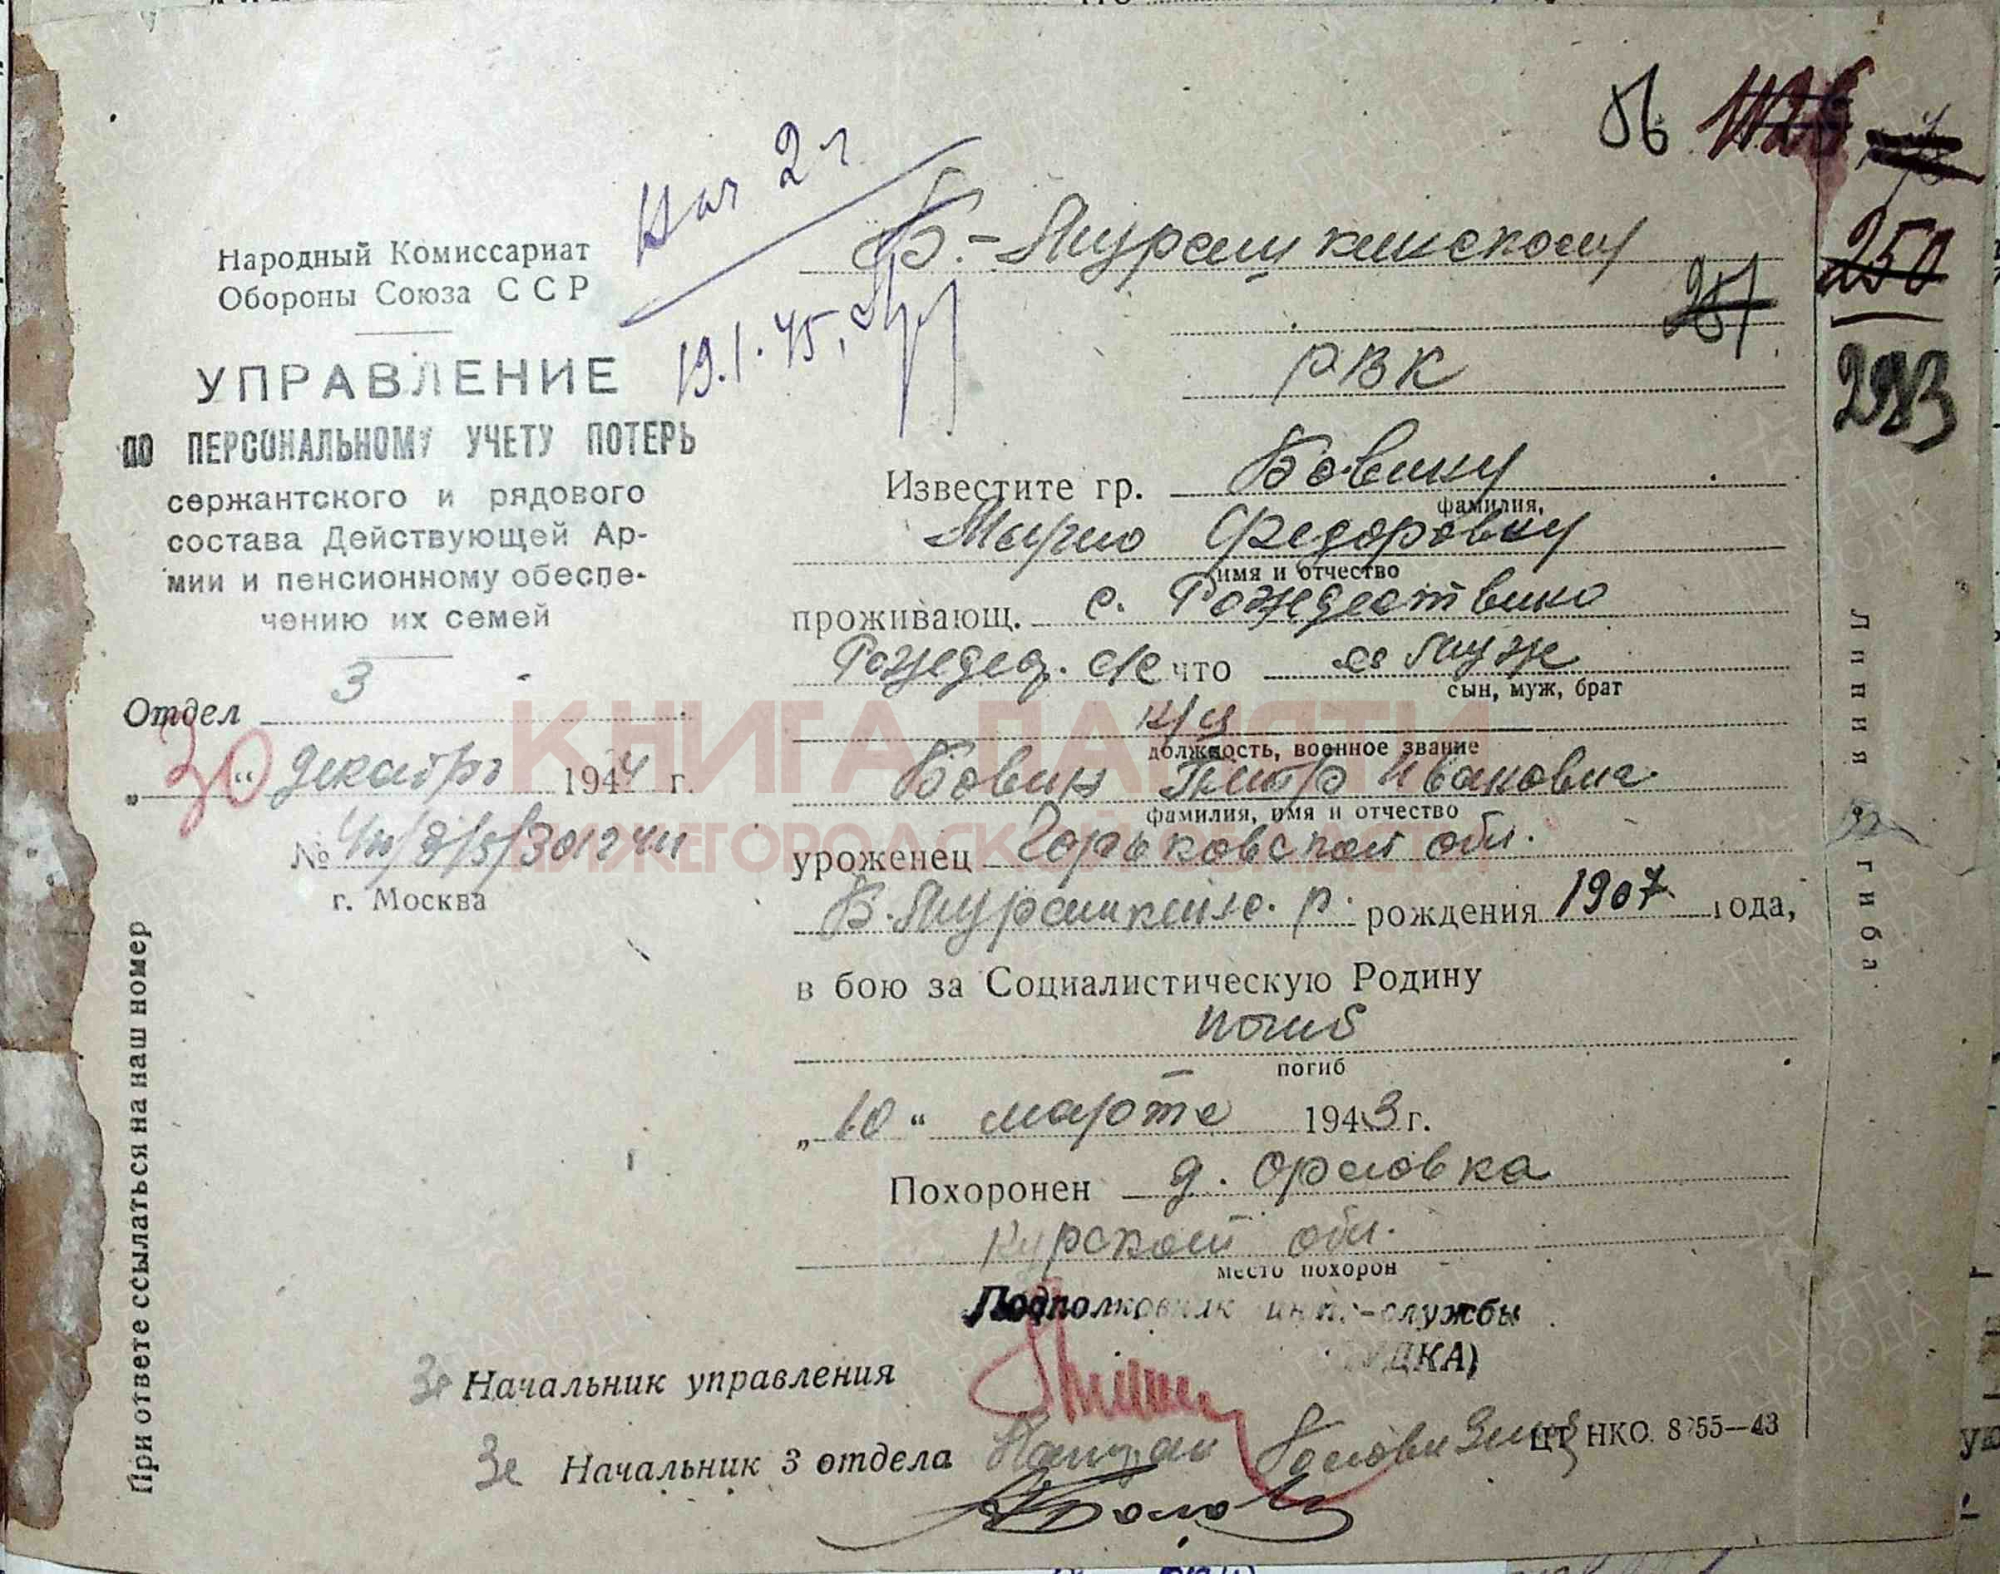 Нач 2 ч
19.1.45,
56
250
251
293
Народный Комиссариат
Обороны Союза ССР
УПРАВЛЕНИЕ
ПО ПЕРСОНАЛЬНОМУ УЧЕТУ ПОТЕРЬ
сержантского и рядового
состава Действующей Ар-
мии и пенсионному обеспе-
чению их семей
Отдел 3
„30“ декабрь 1944 г.
№
г. Москва
При ответе ссылаться на наш номер
Б-Мурашкинскому
РВК
Известите гр. Бовину
фамилия,
Марию Федоровну
имя и отчество
проживающ. с. Рождествино
Рождед. с/с что ее муж
сын, муж, брат
к/ц
должность, военное звание
Бовин Петр Иванович
фамилия, имя и отчество
уроженец Горьковской обл.
Б.Мурашкинс. р. рождения 1907 года,
в бою за Социалистическую Родину
погиб
погиб
„10“ марта 1943 г.
Похоронен д. Орловка
Курской обл.
место похорон
Подполковник инт.-службы
За Начальник управления
За Начальник 3 отдела Капитан
ЦТ НКО 8255—43
Линия загиба
КНИГА ПАМЯТИ
НИЖЕГОРОДСКОЙ ОБЛАСТИ
ПАМЯТЬ НАРОДА